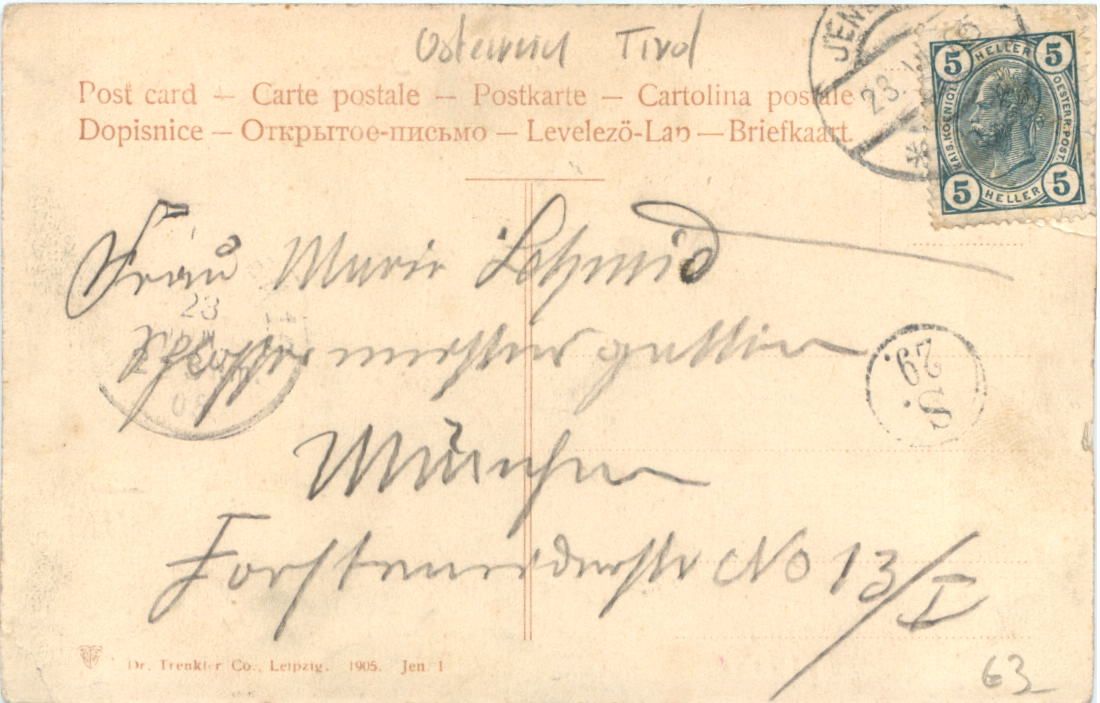 Österreich Tirol
Post card – Carte postale – Postkarte – Cartolina postale
Dopisnice – Открытое-письмо – Levelező-Lap – Briefkaart.
JEN
23.
5 HELLER 5
KAIS. KOENIGL. OESTERR. POST.
5 HELLER 5
Frau Marie Schmid
23
05
S. 29.
München
Forstenriederstr No 13/I
Dr. Trenkler Co., Leipzig. 1905. Jen. 1
63